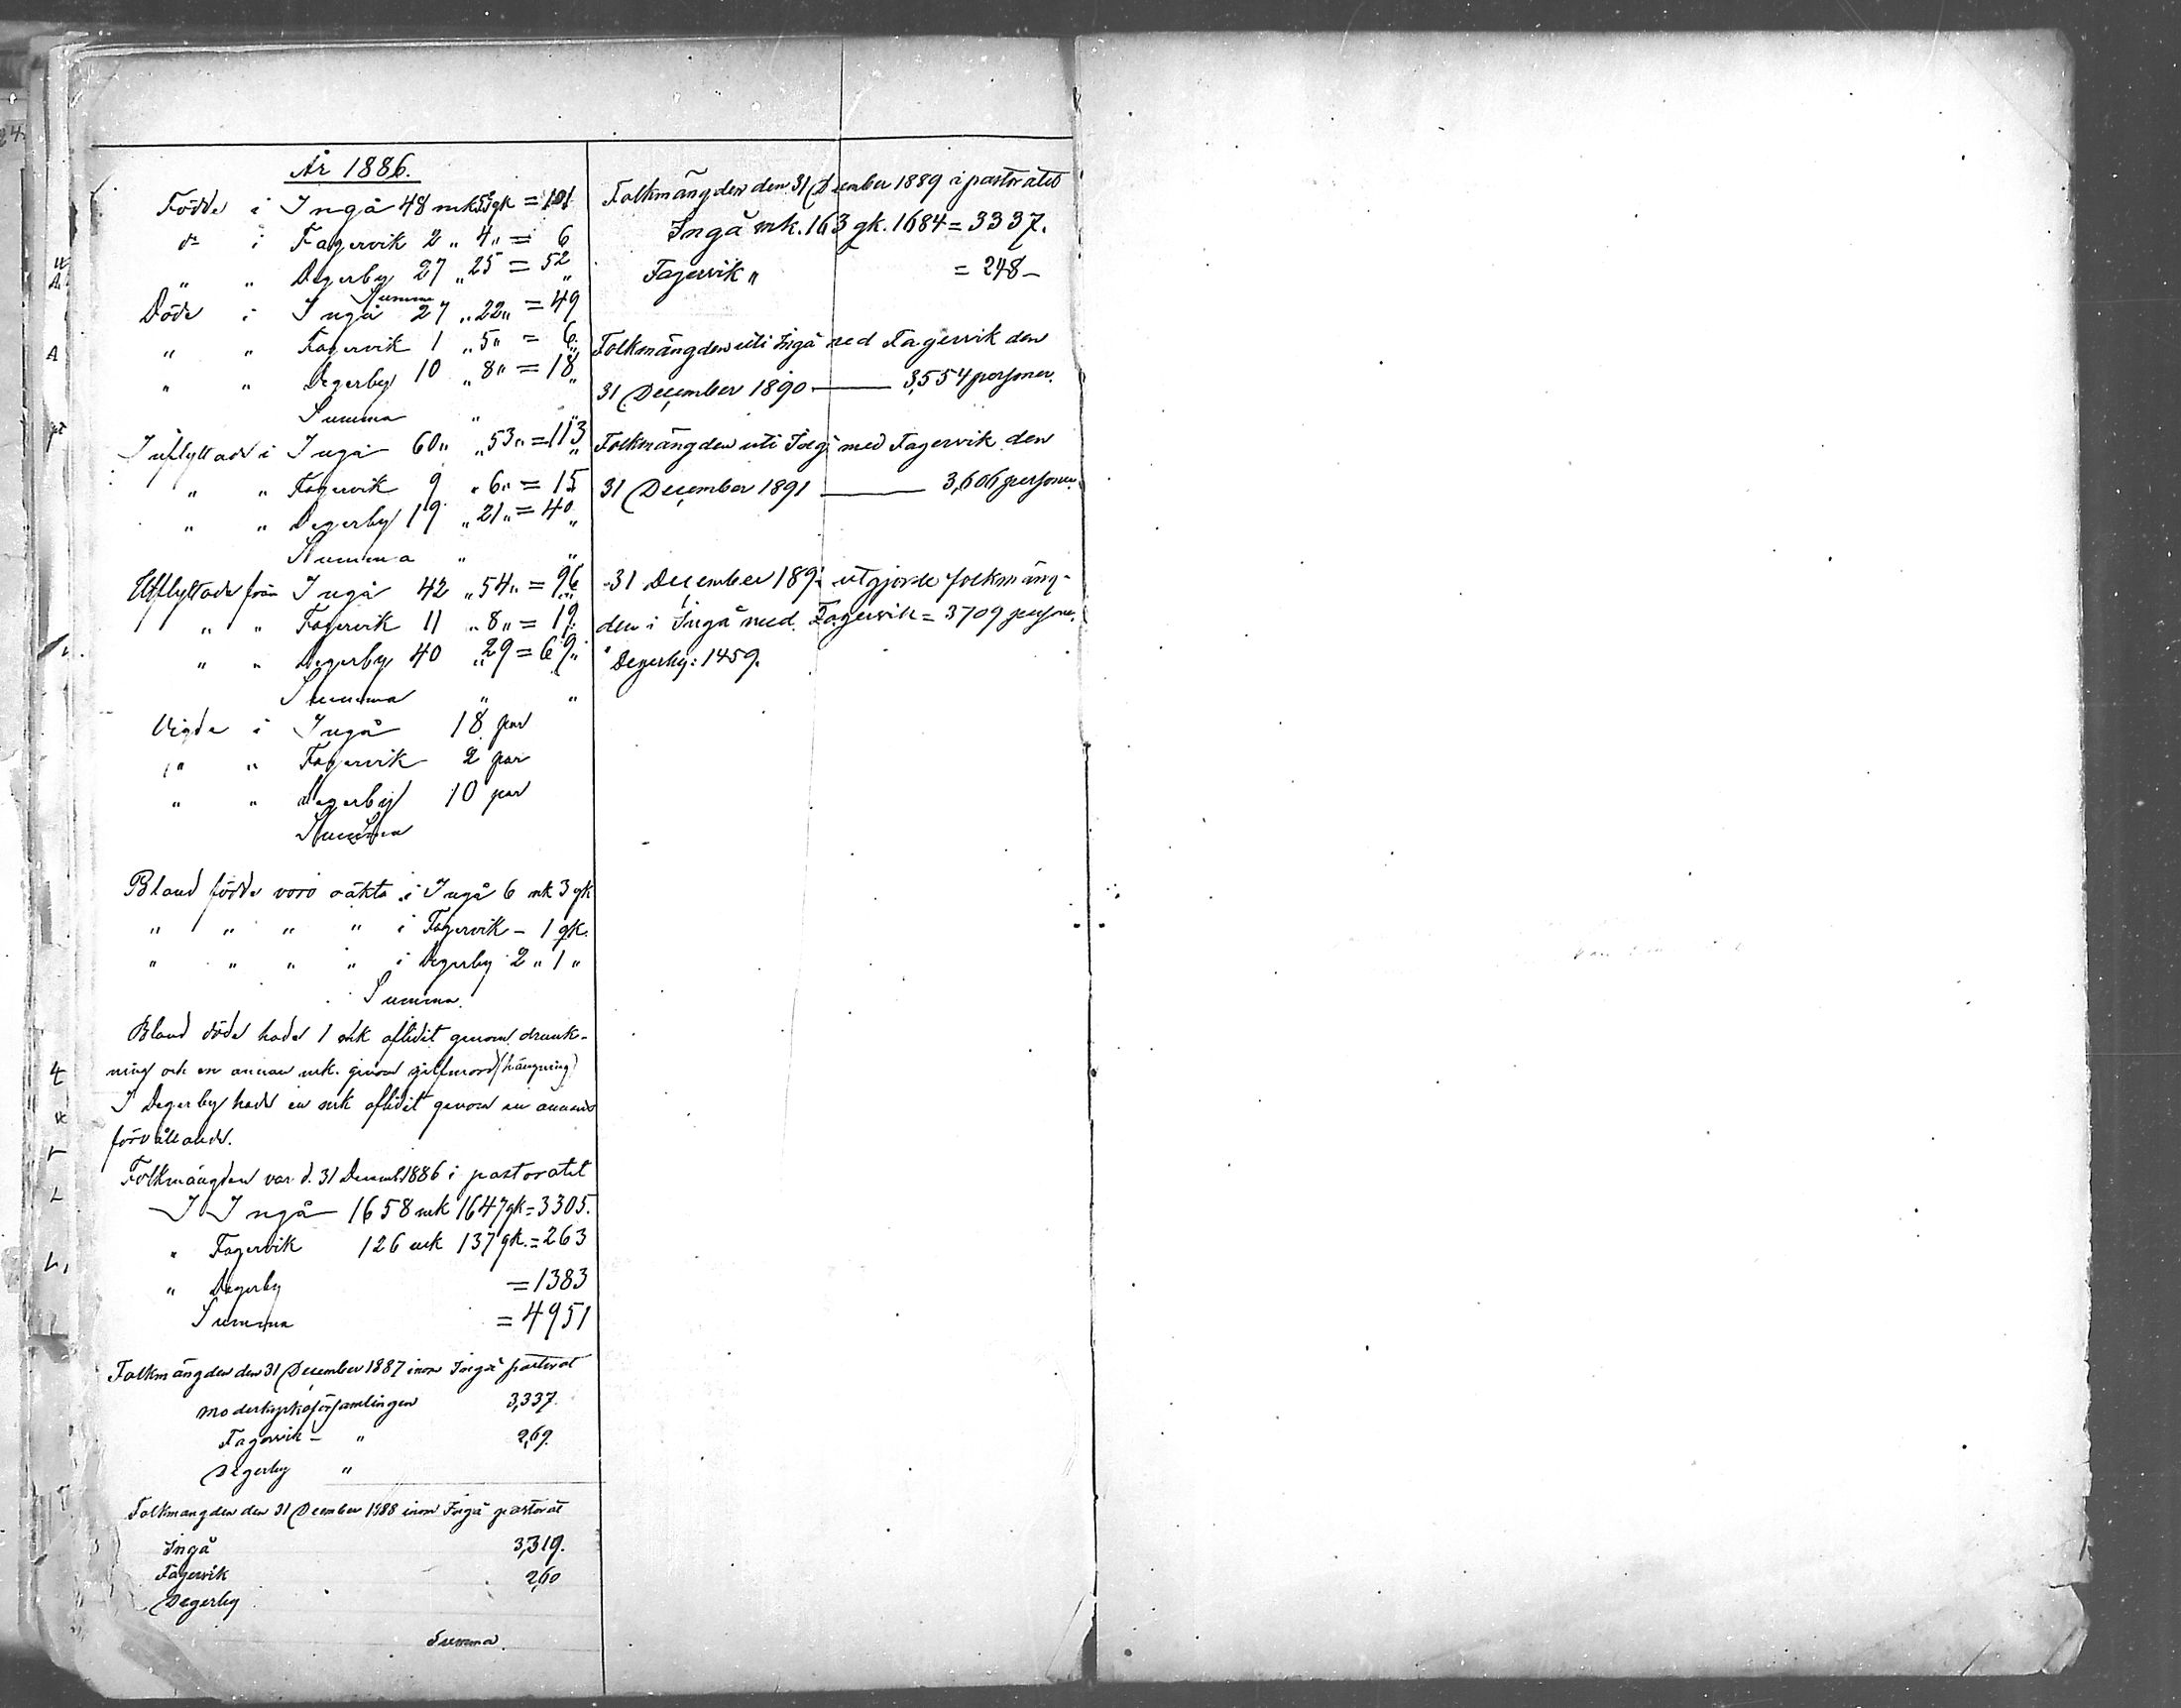 År 1886.
Födde i Ingå 48 mk 53 gk = 101
d:o i Fagervik 2 " 4 " = 6
" " Degerby 27 " 25 = 52
Summa "
Döde i Ingå 27 " 22 " = 49
" " Fagervik 1 " 5 " = 6
" " Degerby 10 " 8 " = 18
Summa " "
Inflyttade i Ingå 60 " " 53 " = 113
" " Fagervik 9 " 6 " = 15
" " Degerby 19 " 21 " = 40
Summa " "
Utflyttade från Ingå 42 " 54 " = 96
" " Fagervik 11 " 8 " = 19
" " Degerby 40 " 29 = 69
Summa " "
Vigde i Ingå 18 par
" " Fagervik 2 par
" " Degerby 10 par
Summa
Bland födde voro oäkta i Ingå 6 mk 3 gk
" " " " i Fagervik - 1 gk.
" " " " i Degerby 2 " 1 "
Summa.
Bland döde hade 1 mk aflidit genom drunk-
ning och en annan mk. genom sjelfmord (hängning)
I Degerby hade en mk aflidit genom en annans
förvållande.
Folkmängden var d. 31 Decemb 1886 i pastoratet
I Ingå 1658 mk 1647 gk = 3305.
" Fagervik 126 mk 137 gk. = 263
" Degerby = 1383
Summa = 4951
Folkmängden den 31 December 1887 inom Ingå pastorat
Moderkyrkoförsamlingen 3,337.
Fagervik - " 269.
Degerby "
Folkmangden den 31 December 1888 inom Ingå pastorat
Ingå 3,319.
Fagervik 260
Degerby
Summa.
Folkmängden den 31 December 1889 i pastoratet
Ingå mk. 163 gk. 1684 = 3337.
Fagervik " = 248 -
Folkmängden uti Ingå med Fagervik den
31 December 1890 — 3,554 personer.
Folkmängden uti Ingå med Fagervik den
31 December 1891 — 3,606 personer.
31 December 189 utgjorde folkmäng-
den i Ingå med Fagervik = 3709 person.
" Degerby: 1459.